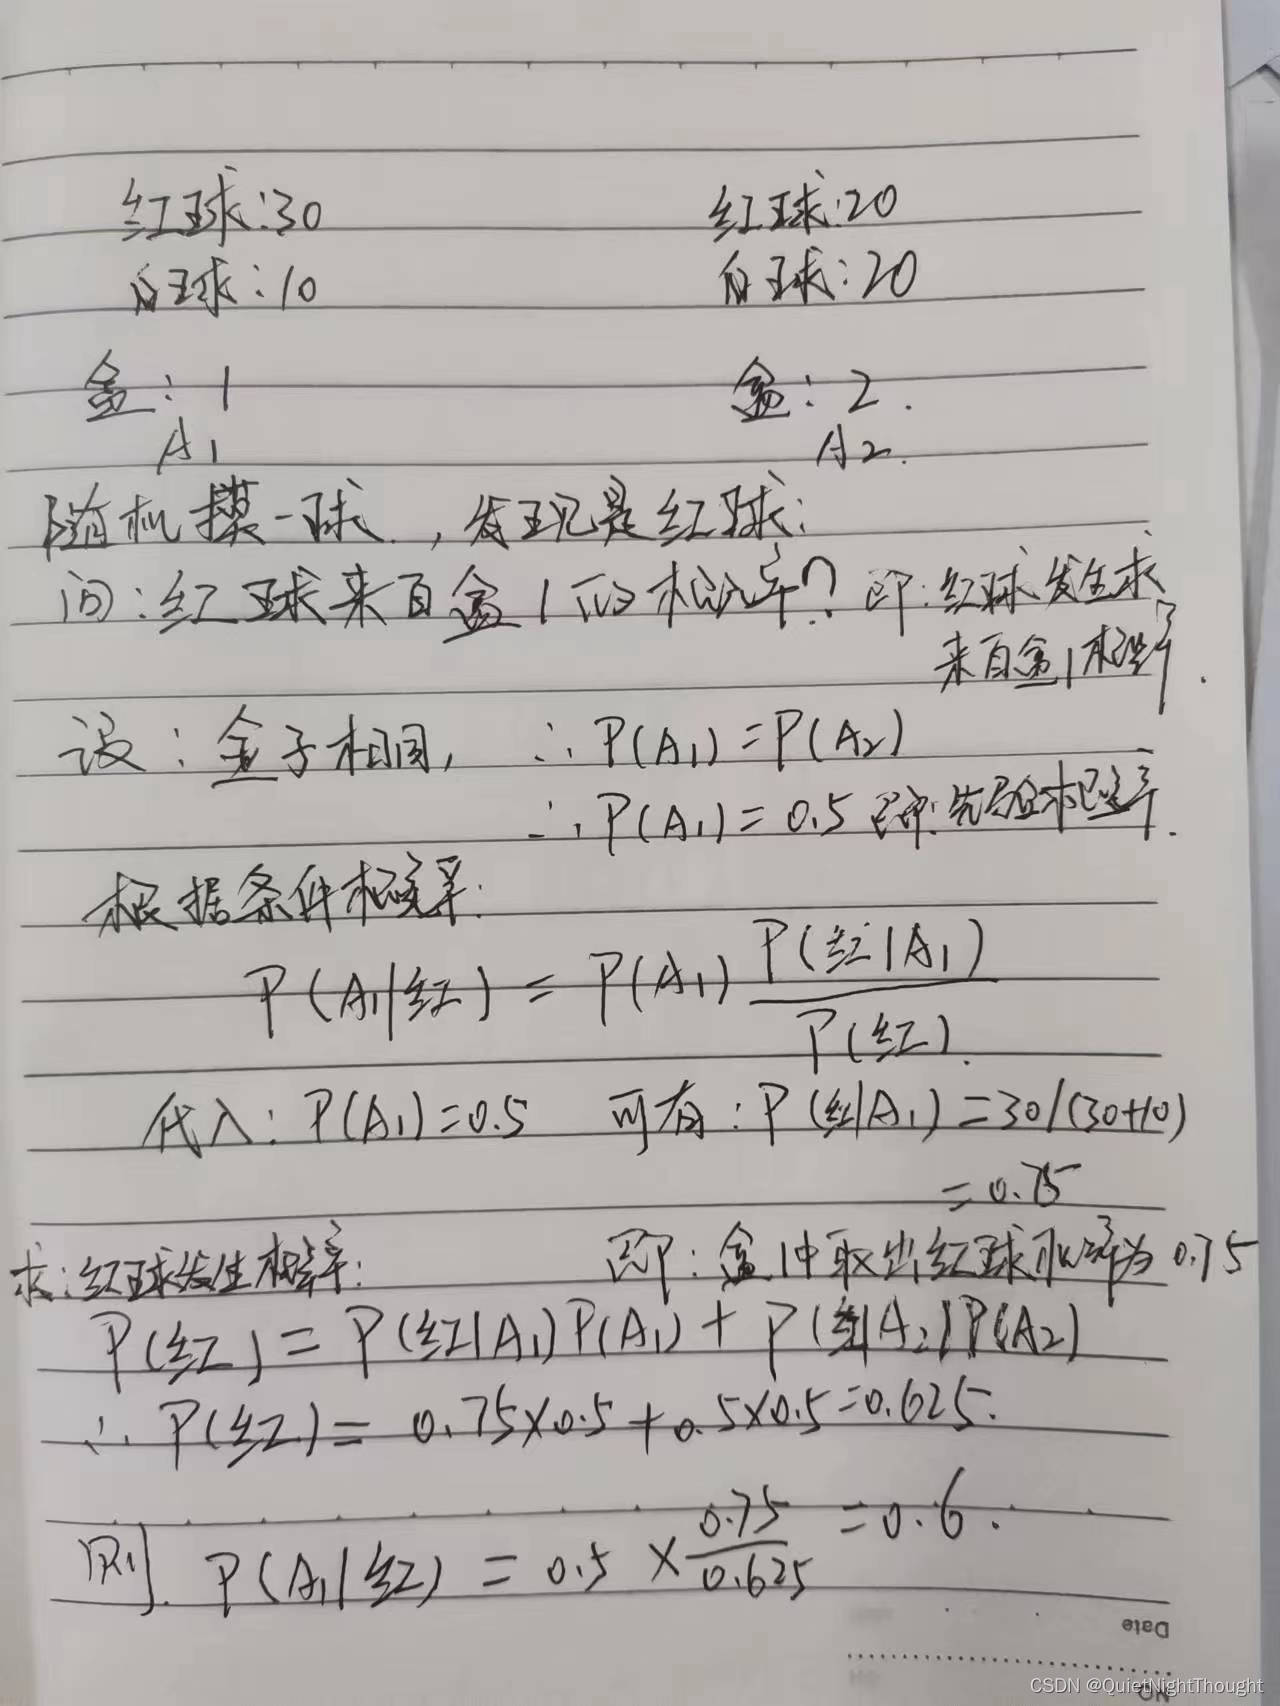 红球:30 红球:20
白球:10 白球:20
盒:1 盒:2.
A1 A2.
随机摸一球,发现是红球:
问:红球来自盒1的概率? 即:红球发生求
来自盒1概率.
设:盒子相同, ∴P(A1)=P(A2)
∴P(A1)=0.5 即:先验概率.
根据条件概率:
P(A1|红)=P(A1) P(红|A1)
P(红).
代入:P(A1)=0.5 可有:P(红|A1)=30/(30+10)
=0.75
求:红球发生概率: 即:盒1中取出红球概率为0.75
P(红)=P(红|A1)P(A1)+P(红|A2)P(A2)
∴P(红)=0.75×0.5+0.5×0.5=0.625.
则. P(A1|红)=0.5×0.75/0.625=0.6.
Date
NO.
CSDN @QuietNightThought